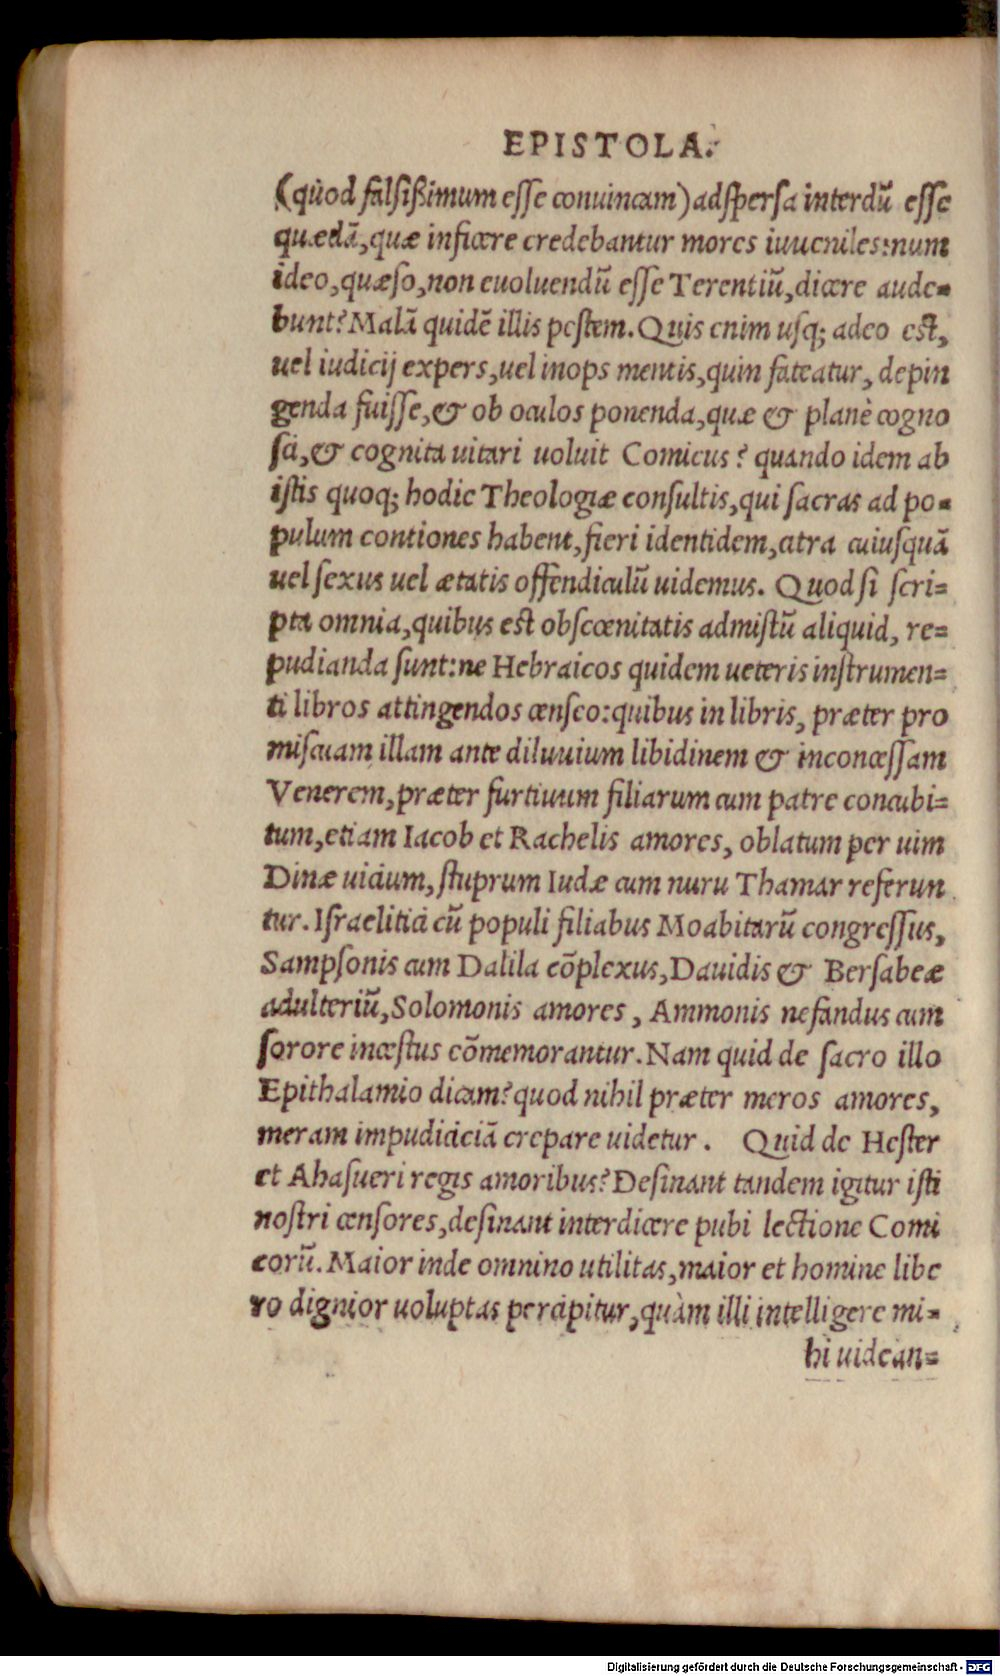 EPISTOLA.
(quòd falsißimum esse conuincam) adspersa interdū esse
quædā, quæ inficere credebantur mores iuueniles: num
ideo, quæso, non euoluendū esse Terentiū, dicere aude-
bunt? Malā quidē illis pestem. Quis enim usq; adeo est,
uel iudicij expers, uel inops mentis, quin fateatur, depin
genda fuisse, & ob oculos ponenda, quæ & planè cogno
sci, & cognita uitari uoluit Comicus? quando idem ab
istis quoq; hodie Theologiæ consultis, qui sacras ad po-
pulum contiones habent, fieri identidem, citra cuiusquā
uel sexus uel ætatis offendiculū uidemus. Quod si scri=
pta omnia, quibus est obscœnitatis admistū aliquid, re=
pudianda sunt: ne Hebraicos quidem ueteris instrumen=
ti libros attingendos censeo: quibus in libris, præter pro
miscuam illam ante diluuium libidinem & inconcessam
Venerem, præter furtiuum filiarum cum patre concubi=
tum, etiam Iacob et Rachelis amores, oblatum per uim
Dinæ uicium, stuprum Iudæ cum nuru Thamar referun
tur. Israelitici cū populi filiabus Moabitarū congressus,
Sampsonis cum Dalila cōplexus, Dauidis & Bersabeæ
adulteriū, Solomonis amores, Ammonis nefandus cum
sorore incestus cōmemorantur. Nam quid de sacro illo
Epithalamio dicam? quod nihil præter meros amores,
meram impudiciciā crepare uidetur. Quid de Hester
et Ahasueri regis amoribus? Desinant tandem igitur isti
nostri censores, desinant interdicere pubi lectione Comi
corū. Maior inde omnino utilitas, maior et homine libe
ro dignior uoluptas percipitur, quàm illi intelligere mi-
hi uidean=
Digitalisierung gefördert durch die Deutsche Forschungsgemeinschaft - DFG